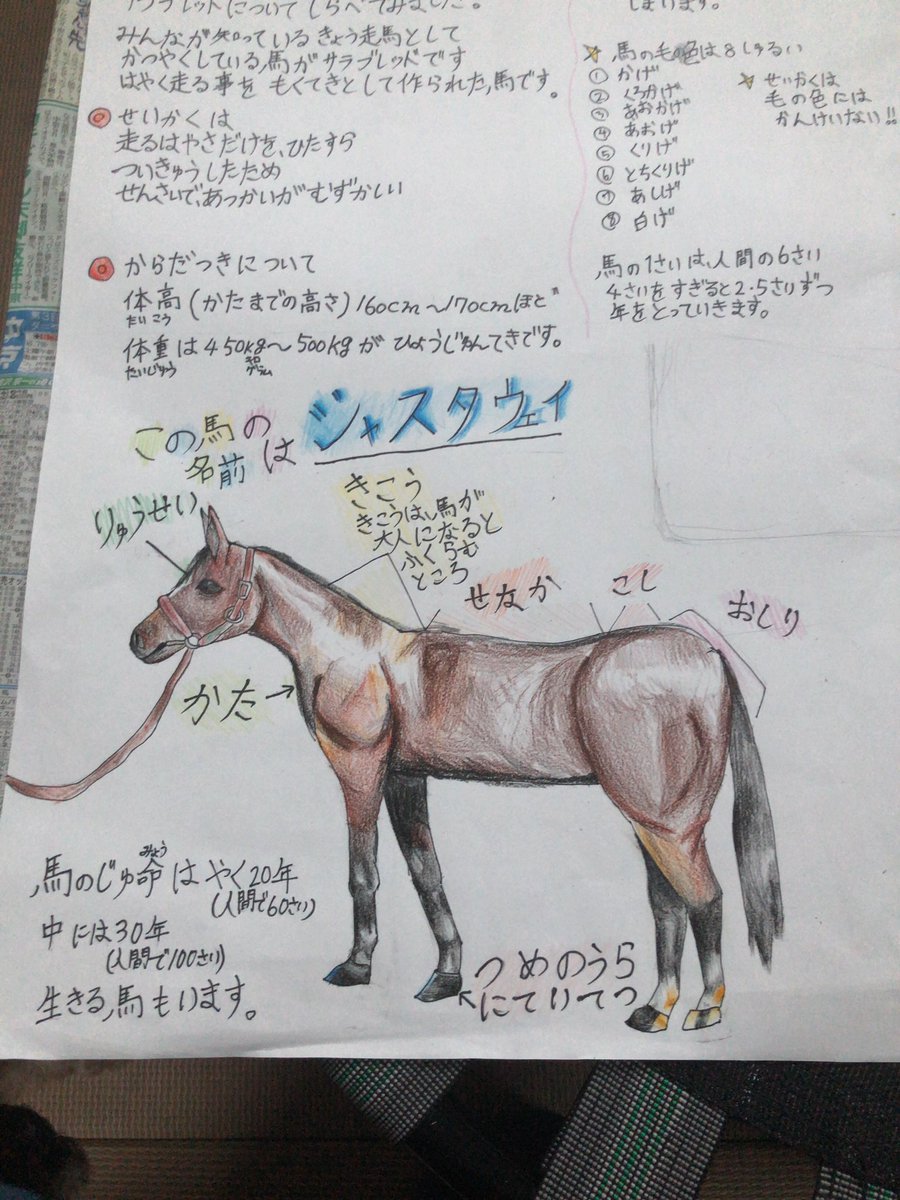 サラブレットについてしらべてみました。
みんなが知っているきょう走馬として
かつやくしている馬がサラブレッドです
はやく走る事をもくてきとして作られた馬です。
◎せいかくは
走るはやさだけを、ひたすら
ついきゅうしたため
せんさいで、あつかいがむずかしい
◎からだつきについて
体高(かたまでの高さ)160cm〜170cmほど
たいこう
体重は450kg〜500kgがひょうじゅんてきです。
たいじゅう キログラム
しまいます。
馬の毛色は8しゅるい
①かげ
②くろかげ
③あおかげ
④あおげ
⑤くりげ
⑥とちくりげ
⑦あしげ
⑧白げ
せいかくは
毛の色には
かんけいない!!
馬の1さいは、人間の6さい
4さいをすぎると2.5さいずつ
年をとっていきます。
この馬の
名前は
ジャスタウェイ
りゅうせい
きこう
きこうは、馬が
大人になると
ふくらむ
ところ
せなか
こし
おしり
かた→
馬のじゅ命はやく20年
みょう
(人間で60さい)
中には30年
(人間で100さい)
生きる馬もいます。
つめのうら
にていてつ